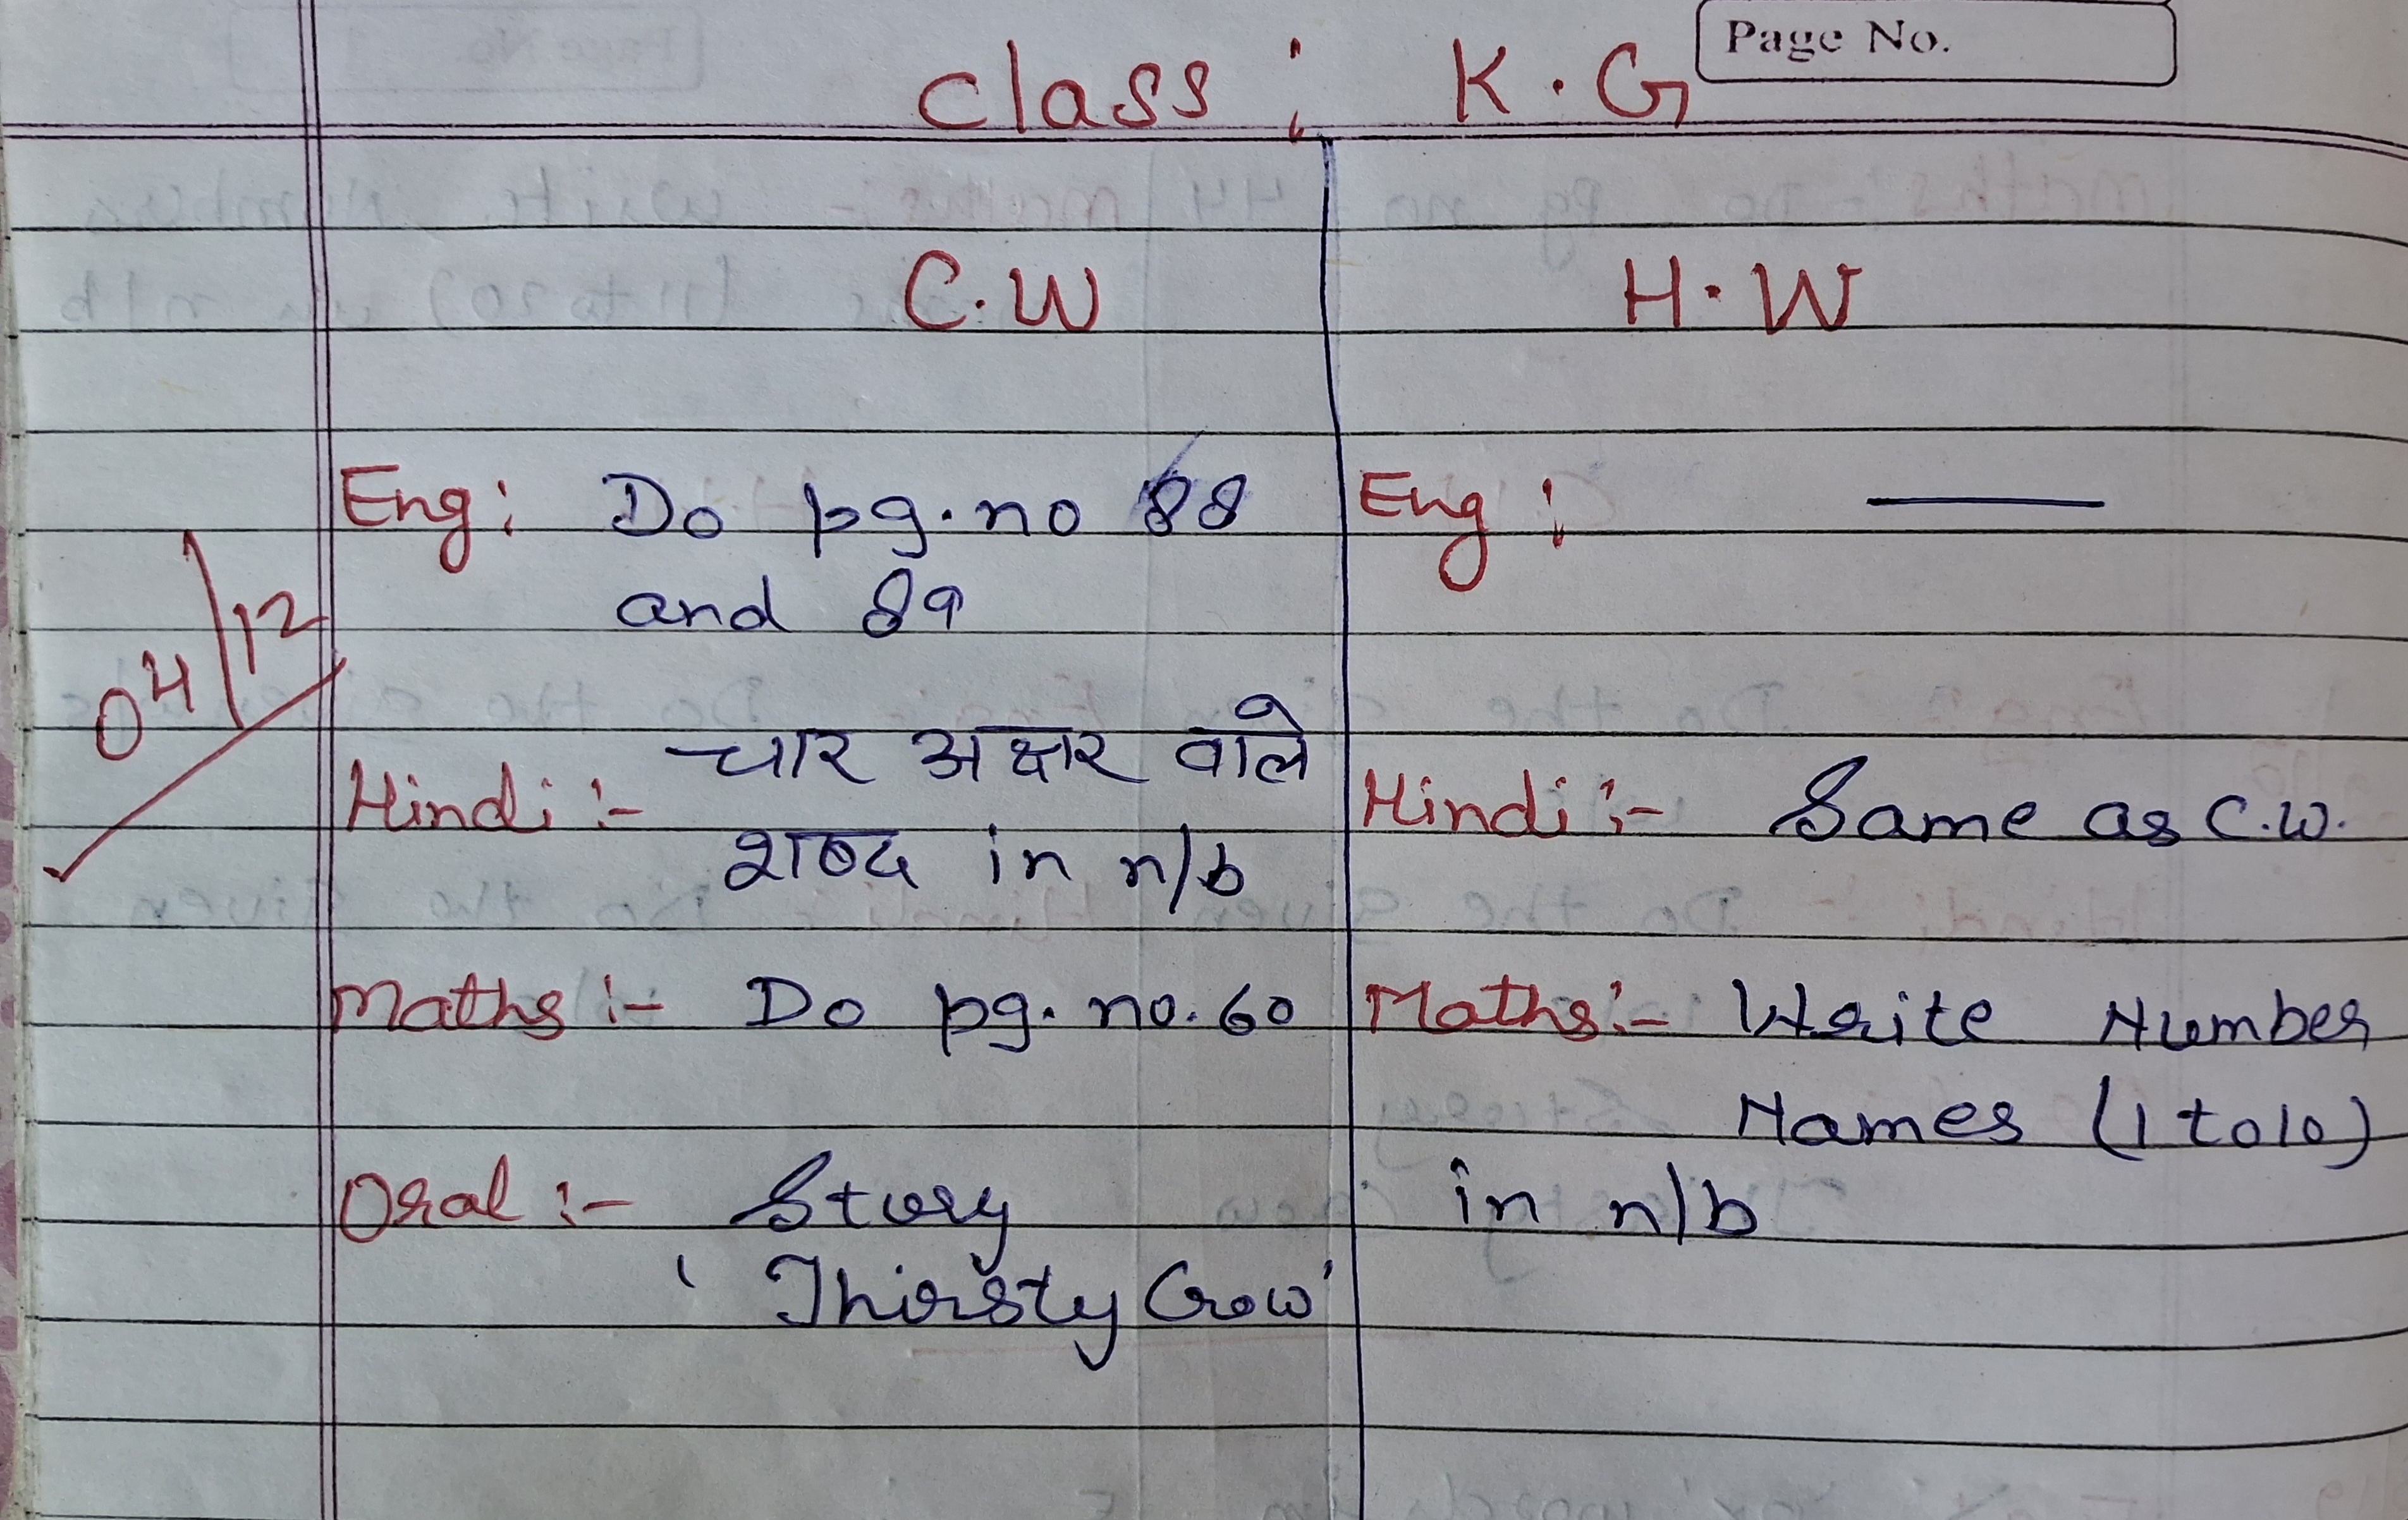 Page No.
Class : K.G
C.W
H.W
04/12
Eng : Do pg.no 88
and 89
Hindi :- चार अक्षर वाले
शब्द in n/b
Maths :- Do pg. no. 60
Oral :- Story
' Thirsty Crow'
Eng : ——
Hindi :- Same as C.W.
Maths :- Write Number
Names (1 to 10)
in n/b